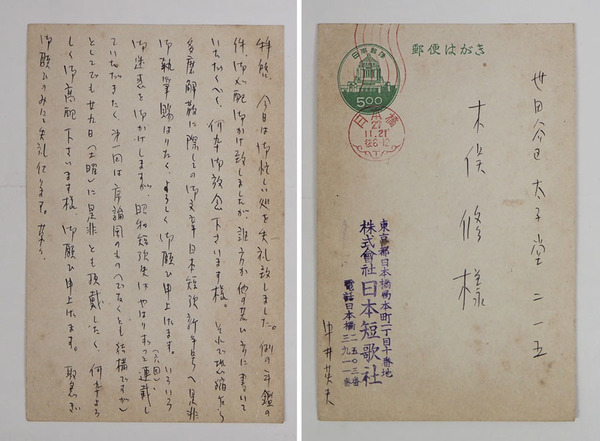 拝啓、今日は御忙しい処を失礼致しました。例の年鑑の
件、御心配御かけ致しましたが、誰方か他の若い方に書いて
いたゞくべく、何卒御放念下さいます様。それで恐縮乍ら
多磨解散に際しての御文章、日本短歌新年号へ是非
御執筆賜はりたく、よろしく御願ひ申上げます。いろいろ
御迷惑を御かけしますが、昭和短歌史はやはりずっと連載し
ていたゞきたく、第一回は序論風のもの(でなくとも結構ですが)
としてでも廿九日(土曜)に是非とも頂戴したく、何卒よろ
しく御高配下さいます様、御願ひ申上げます。取急ぎ
御願ひのみにて失礼仕ります。草々
郵便はがき
日本郵便
500
日本橋
27
11.21
后6-12
世田谷区太子堂二一五
木俣修様
東京都日本橋区本町一丁目十番地
株式會社日本短歌社
電話日本橋二五〇三番
三九一一番
中井英夫